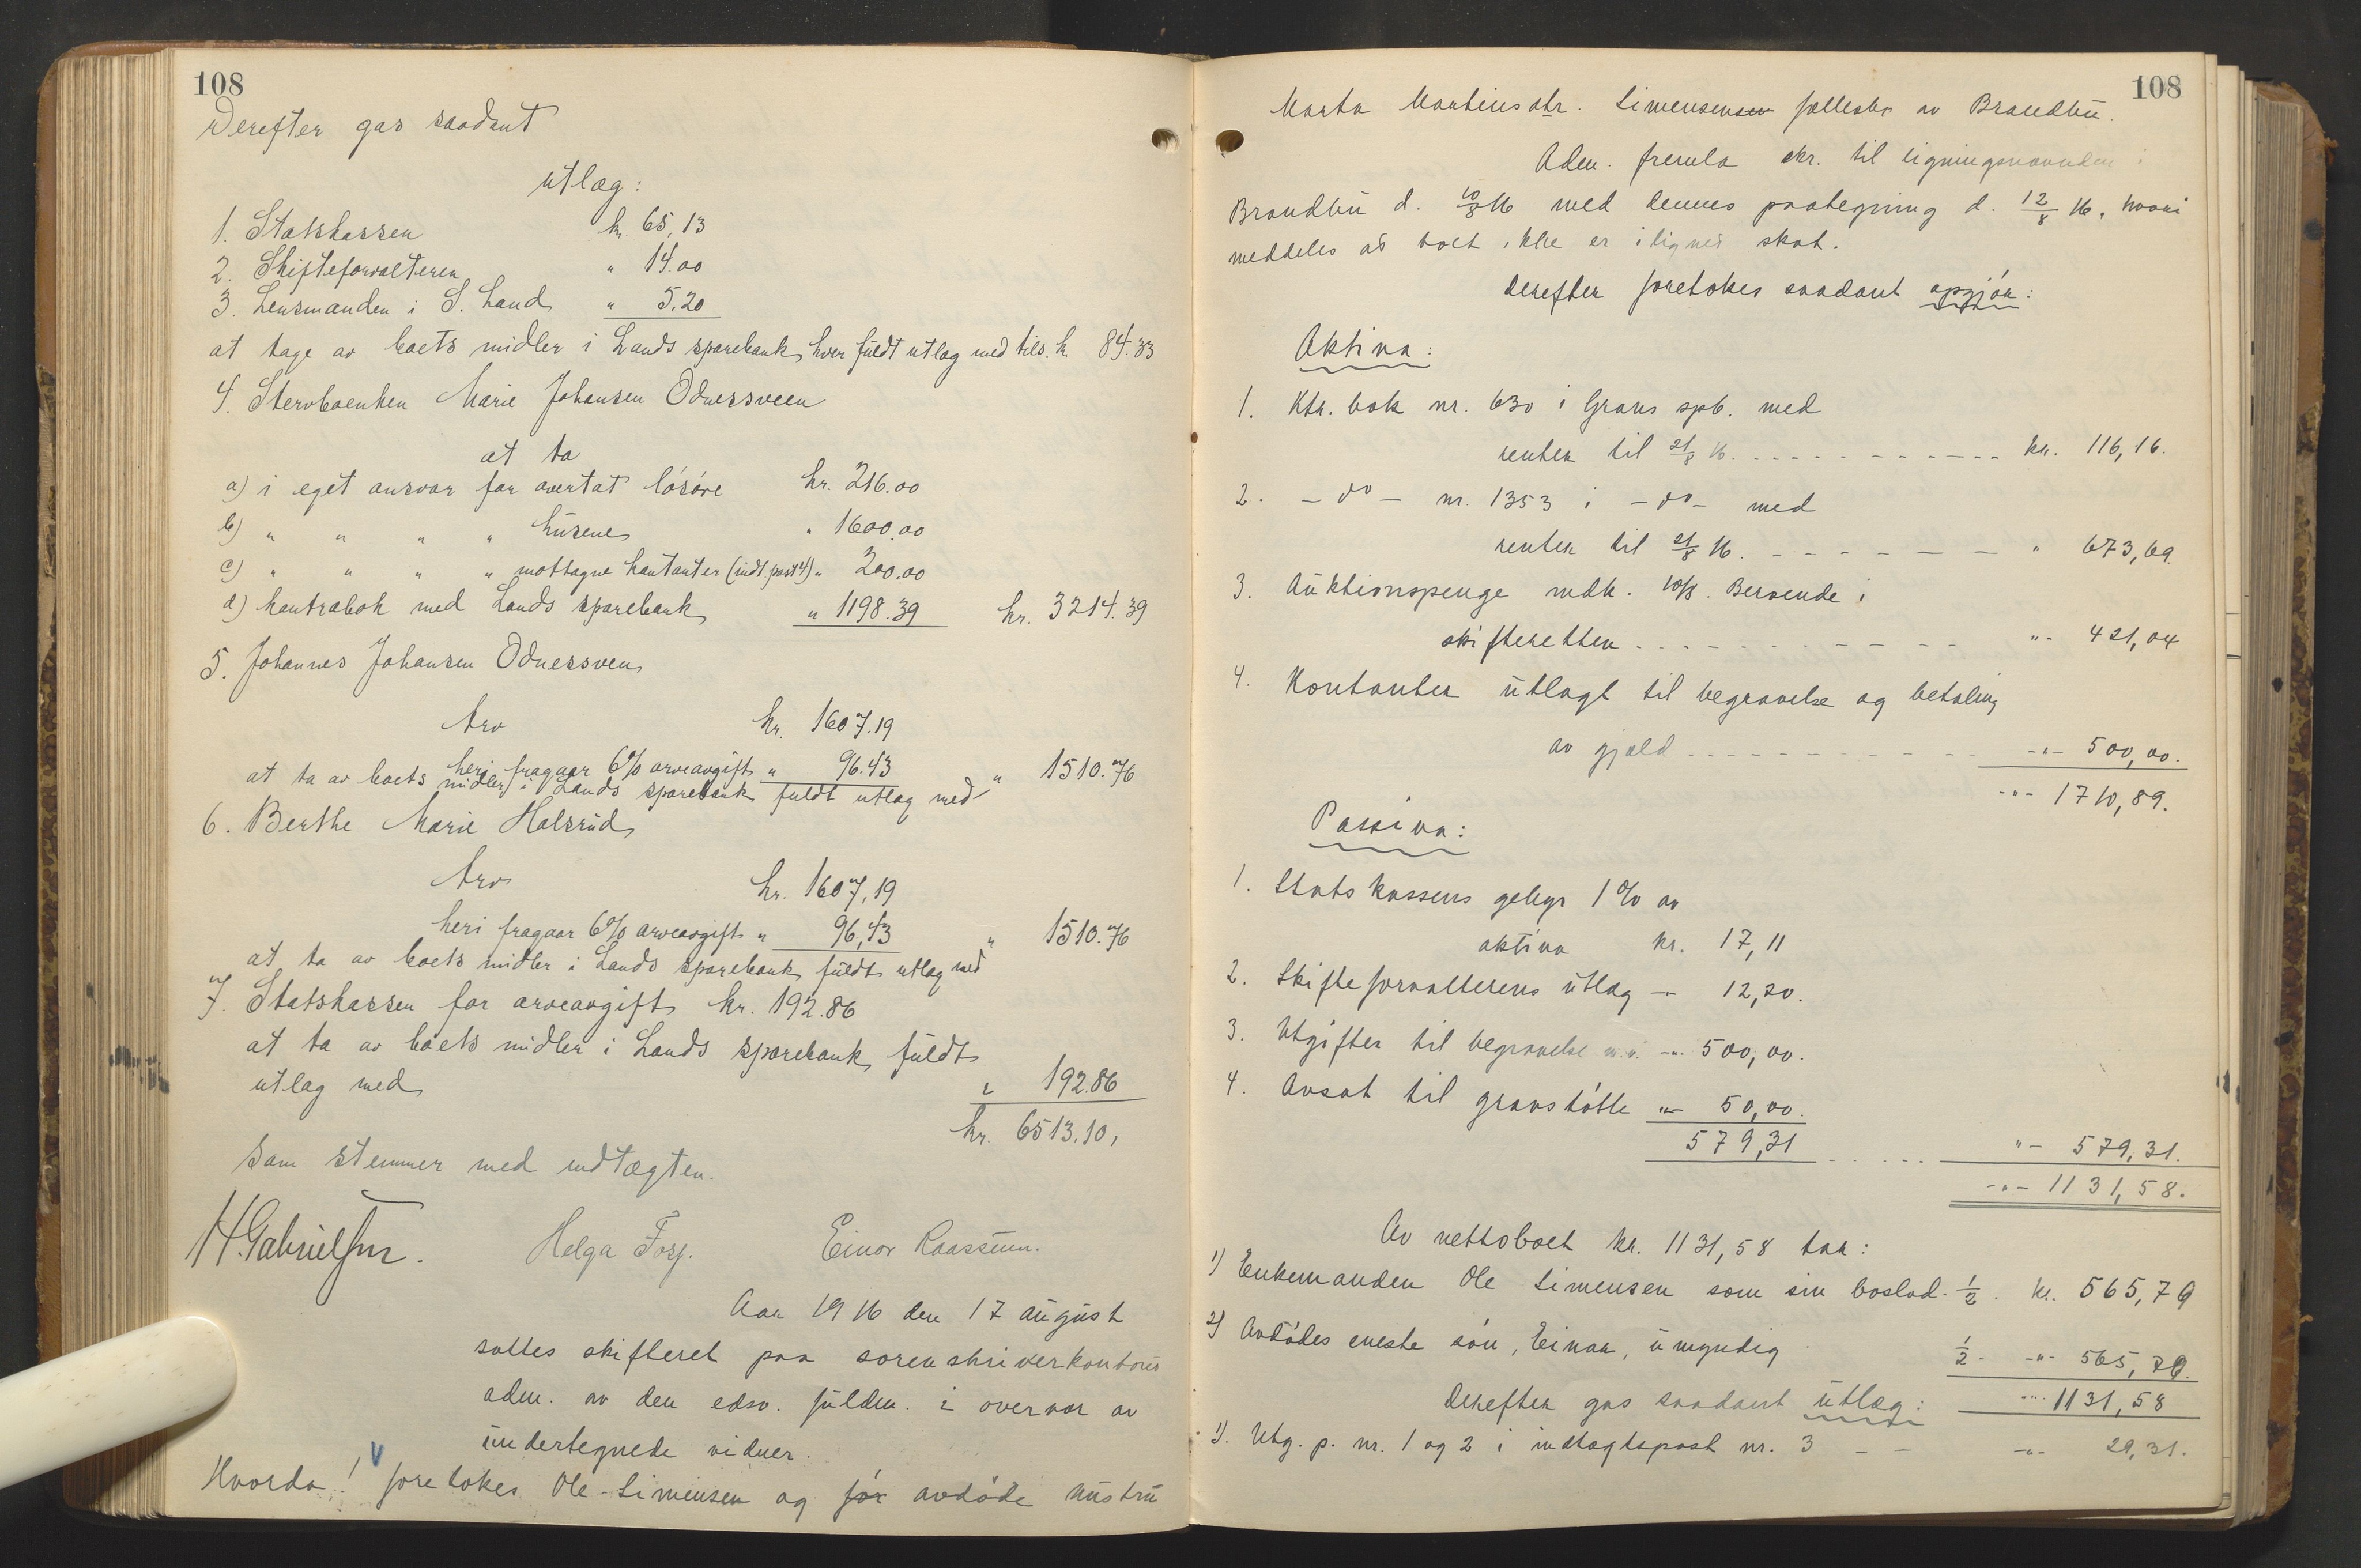 108
Derefter gas saadant
utlæg:
1. Statskassen kr. 65,13
2. Skifteforvalteren " 14.00
3. Lensmanden i S. Land " 5.20
at tage av boets midler i Lands sparebank hver fuldt utlæg med tils. k. 84.33
4. Stervboenken Marie Johansen Odnessveen
at ta
a) i eget ansvar for overtat løsøre kr. 216.00
b) " " " " husene " 1600.00
c) " " " " mottagne kontanter (indt post 4) " 200.00
d) kontrabok med Lands sparebank " 1198.39 kr. 3214.39
5. Johannes Johansen Odnessveen
Arv kr. 1607.19
heri fragaar 6% arveavgift " 96.43
at ta av boets midler i Lands sparebank fuldt utlæg med " 1510.76
6. Berthe Marie Halsrud
Arv kr. 1607,19
heri fragaar 6% arveavgift " 96,43
at ta av boets midler i Lands sparebank fuldt utlæg med " 1510.76
7. Statskassen for arveavgift kr. 192.86
at ta av boets midler i Lands sparebank fuldt
utlæg med " 192.86
kr. 6513.10,
som stemmer med indtægten.
H. Gabrielsen. Helga Fosj. Einar Raassum.
Aar 1916 den 17 august
sattes skifteret paa sorenskriverkontoret
adm. av den edsv. fuldm. i overvær av
undertegnede vidner.
Hvorda! foretokes Ole Simensen og før avdøde hustru
108
Marta Martinsdtr. Simensens fællesbo av Brandbu.
Adm. fremla skr. til ligningsnævnden i
Brandbu d. 10/8 16 med dennes paategning d. 12/8 16, hvori
meddeles at boet ikke er ilignet skat.
Derefter foretokes saadant opgjør:
Aktiva:
1. Ktr. bok nr. 630 i Grans spb. med
renter til 21/8 16. kr. 116,16.
2. - do - nr. 1353 i - do - med
renter til 21/8 16. " 673,69.
3. Auktionspenge indk. 10/8. Beroende i
skifteretten " 421,04
4. Kontanter utlagt til begravelse og betaling
av gjæld -"- 500,00.
-"- 1710,89.
Passiva:
1. Statskassens gebyr 1% av
aktiva kr. 17,11
2. Skifteforvalterens utlæg -"- 12,20.
3. Utgifter til begravelse m.v. -"- 500,00.
4. Avsat til gravstøtte -"- 50,00.
579,31 "- 579,31.
-"- 1131,58.
Av nettoboet kr. 1131,58 tar:
1) Enkemanden Ole Simensen som sin boslod 1/2. kr. 565,79
2) Avdødes eneste søn, Einar, umyndig 1/2 -"- 565,79.
Derefter gas saadant utlæg: -"- 1131,58
1). Utg. p. nr. 1 og 2 i indtægtspost nr. 3 -"- 29,31.